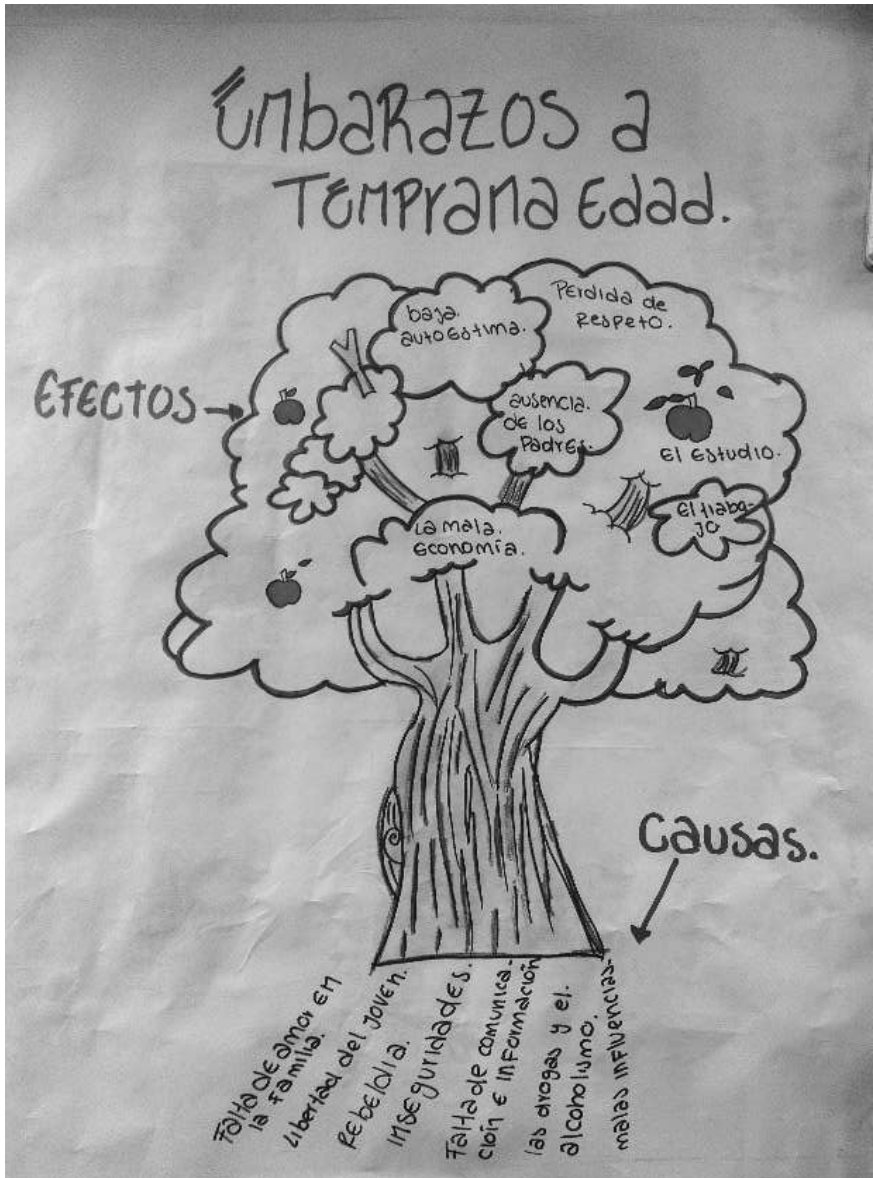 Embarazos a
Temprana Edad.
Perdida de
Respeto.
baja.
autoestima.
EFECTOS
ausencia.
de los
Padres.
El Estudio.
El traba-
jo
La mala.
Economía.
Causas.
Falta de amor en
la familia.
Libertad del joven.
Rebeldia.
Inseguridades.
Falta de comunica-
ción e información
las drogas y el.
alcoholismo.
malas influencias.